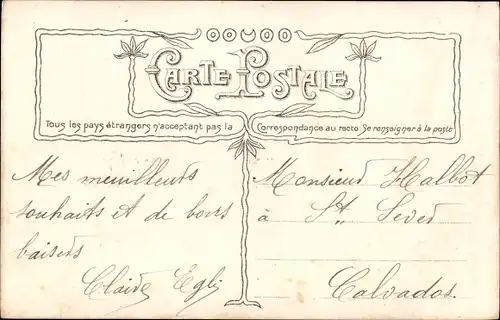 CARTE POSTALE
Tous les pays étrangers n'acceptant pas la Correspondance au recto. Se renseigner à la poste
Mes meuilleurs
souhaits et de bons
baisers
Claire Egli
Monsieur Halbot
à St. Sever
Calvados.